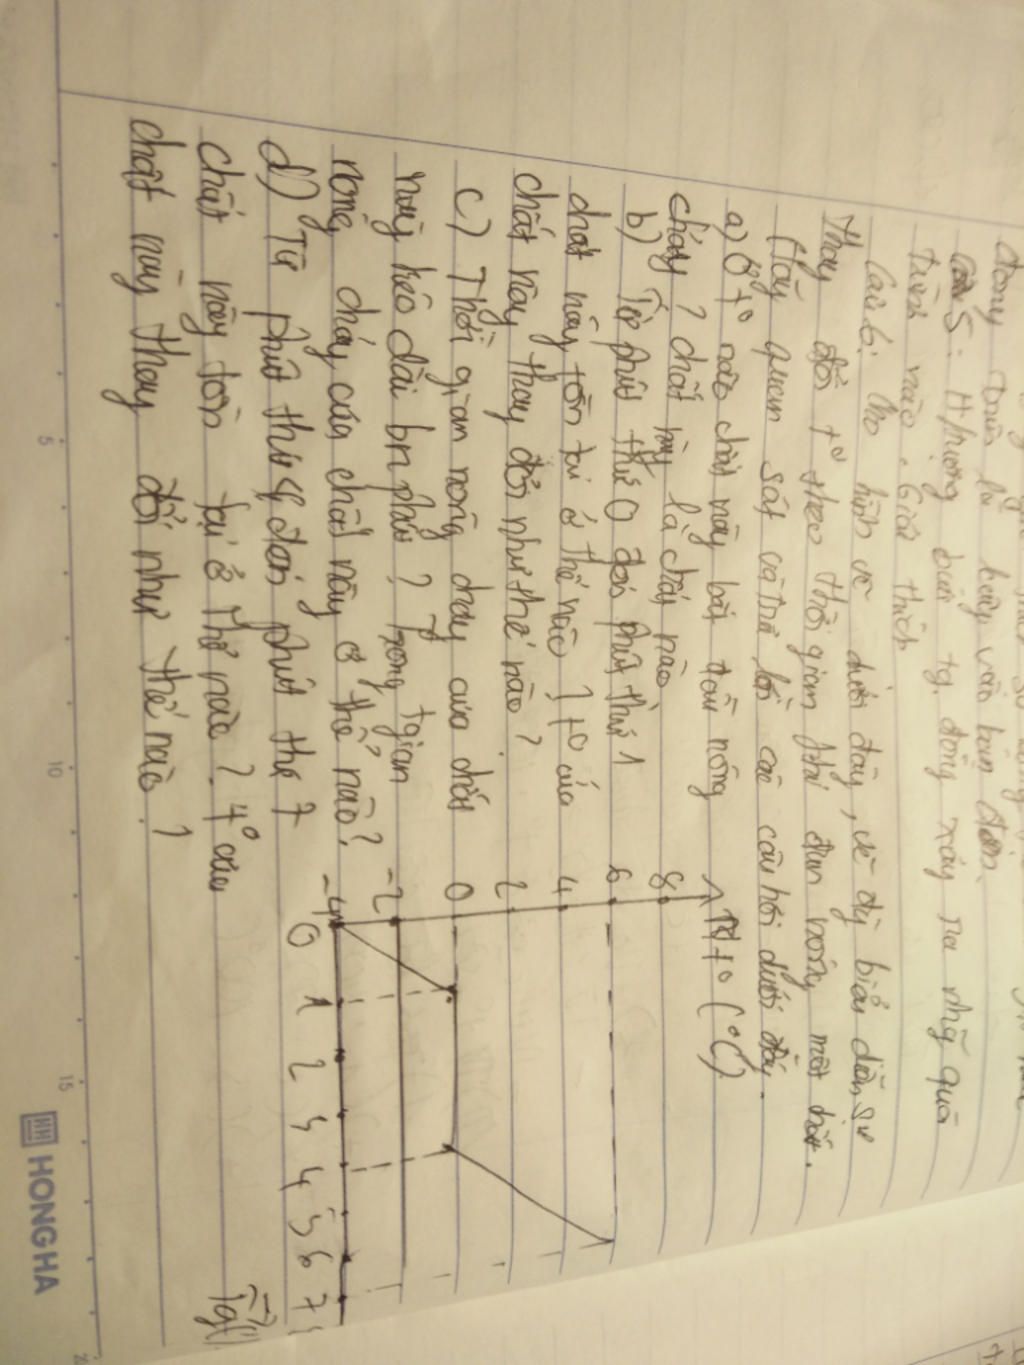 Câu 5: Hiện tượng
trình nào. Giải thích
Câu 6: Cho hình vẽ dưới đây, vẽ đg biểu diễn sự
Thay đổi t° theo thời gian khi đun nóng một chất.
(Hãy quan sát và trả lời các câu hỏi dưới đây.
a) Ở t° nào chất này bắt đầu nóng
chảy? chất này là chất nào
b) Từ phút thứ 0 đến phút thứ 1
chất này tồn tại ở thể nào? t° của
chất này thay đổi như thế nào?
c) Thời gian nóng chảy của chất
này kéo dài bn phút? Trong tgian
nóng chảy của chất này ở thể nào?
d) Từ phút thứ 4 đến phút thứ 7
chất này tồn tại ở thể nào? t° của
chất này thay đổi như thế nào?
t° (°C)
8
6
4
2
0
-2
-4
0 1 2 3 4 5 6 7
5 10 15
HONG HA